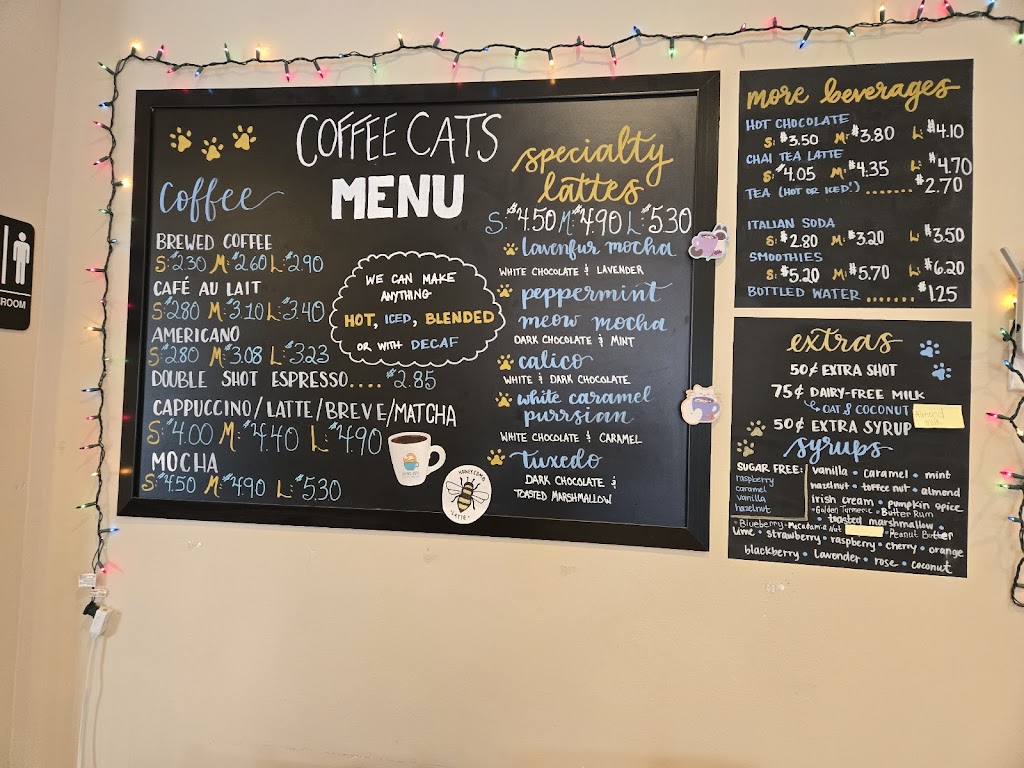 COFFEE CATS
MENU
coffee
BREWED COFFEE
S: $2.30 M: $2.60 L: $2.90
CAFÉ AU LAIT
S: $2.80 M: $3.10 L: $3.40
AMERICANO
S: $2.80 M: $3.08 L: $3.23
DOUBLE SHOT ESPRESSO.... $2.85
CAPPUCCINO/LATTE/BREVE/MATCHA
S: $4.00 M: $4.40 L: $4.90
MOCHA
S: $4.50 M: $4.90 L: $5.30
WE CAN MAKE
ANYTHING
HOT, ICED, BLENDED
OR WITH DECAF
HONEYCOMB
LATTE
specialty
lattes
S: $4.50 M: $4.90 L: $5.30
lavenfur mocha
WHITE CHOCOLATE & LAVENDER
peppermint
meow mocha
DARK CHOCOLATE & MINT
calico
WHITE & DARK CHOCOLATE
white caramel
purrsian
WHITE CHOCOLATE & CARAMEL
tuxedo
DARK CHOCOLATE &
TOASTED MARSHMALLOW
more beverages
HOT CHOCOLATE
S: $3.50 M: $3.80 L: $4.10
CHAI TEA LATTE
S: $4.05 M: $4.35 L: $4.70
TEA (HOT OR ICED!) ....... $2.70
ITALIAN SODA
S: $2.80 M: $3.20 L: $3.50
SMOOTHIES
S: $5.20 M: $5.70 L: $6.20
BOTTLED WATER ....... $1.25
extras
50¢ EXTRA SHOT
75¢ DAIRY-FREE MILK
OAT & COCONUT Almond milk
50¢ EXTRA SYRUP
syrups
SUGAR FREE:
raspberry
caramel
vanilla
hazelnut
vanilla • caramel • mint
hazelnut • toffee nut • almond
irish cream • pumpkin spice
• Golden Turmeric • Butter Rum
toasted marshmallow •
• Blueberry • Macadamia Nut • Peanut Butter
lime • strawberry • raspberry • cherry • orange
blackberry • lavender • rose • coconut
ROOM